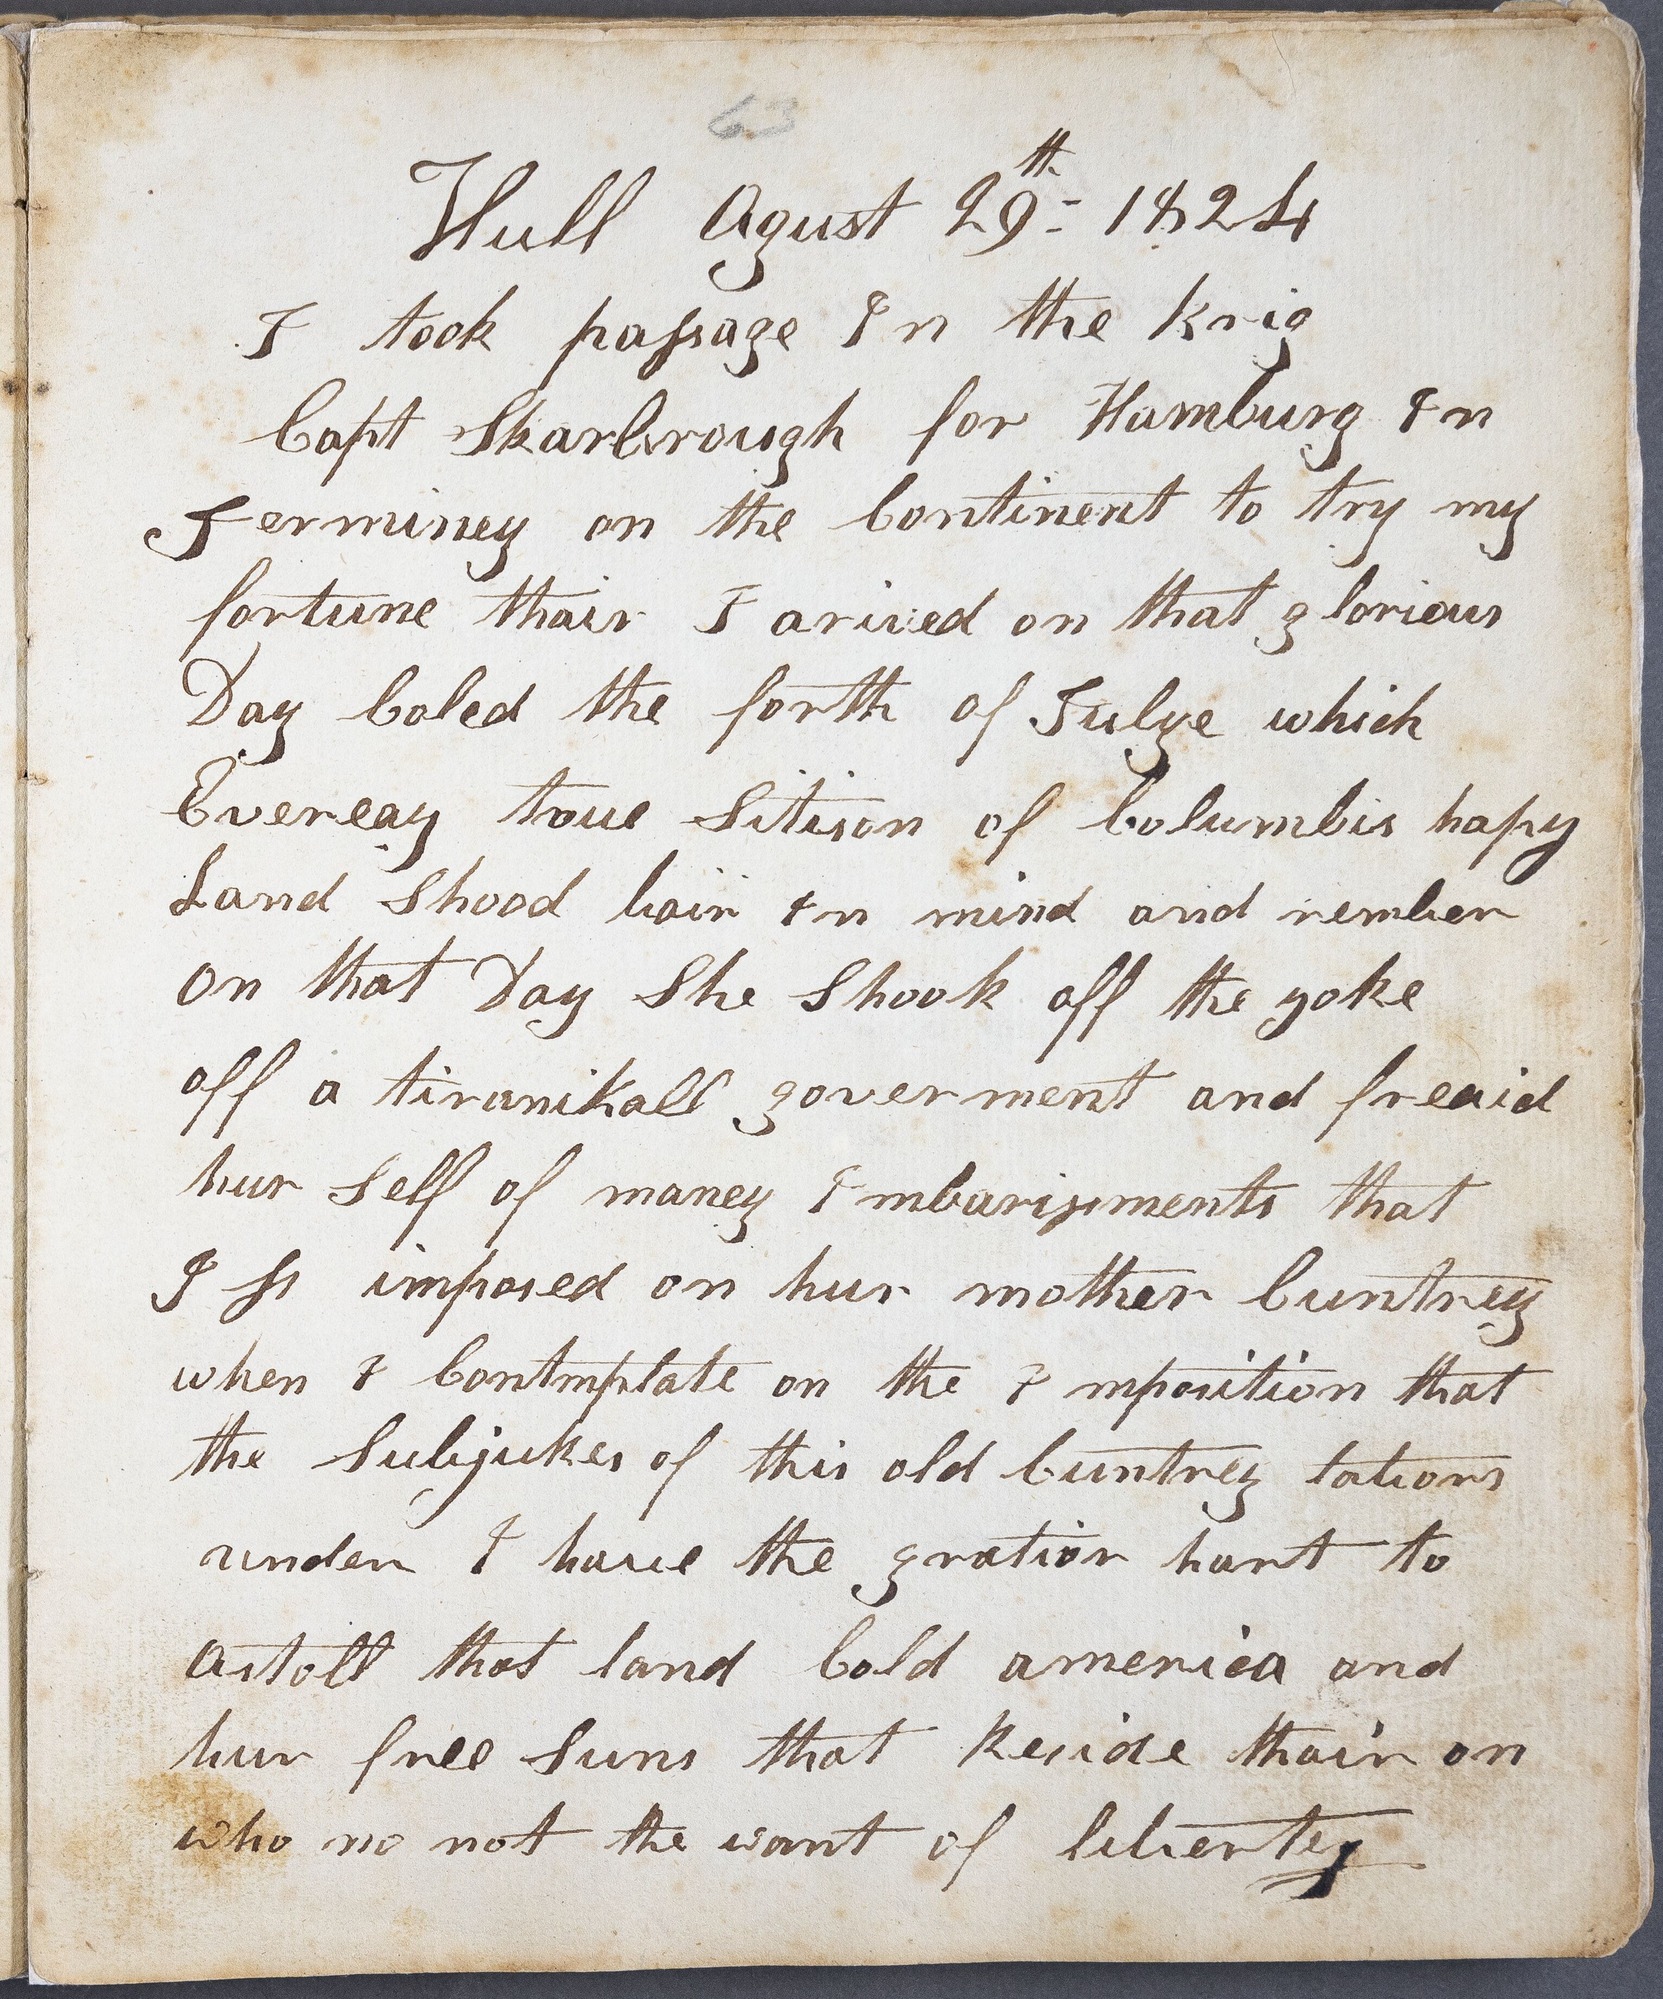 63
Hull Agust 29th- 1824
I took passage In the Krig
Capt Skarbrough for Hamburg In
Jerminey on the Continent to try my
fortune thair I arived on that glorious
Day Coled the forth of Julye which
Evereay true Sitison of Columbis hapy
Land Shood bair In mind and rember
on that Day She Shook off the yoke
off a tiranikall goverment and freaid
hur Self of maney Imbarisments that
I ss imposed on hur mother Cuntrey
when I Contmplate on the Imposition that
the Subjukes of this old Cuntrey labors
under I have the gration hart to
astoll that land Cold america and
hur free Suns that Reside thair on
who no not the want of libertey